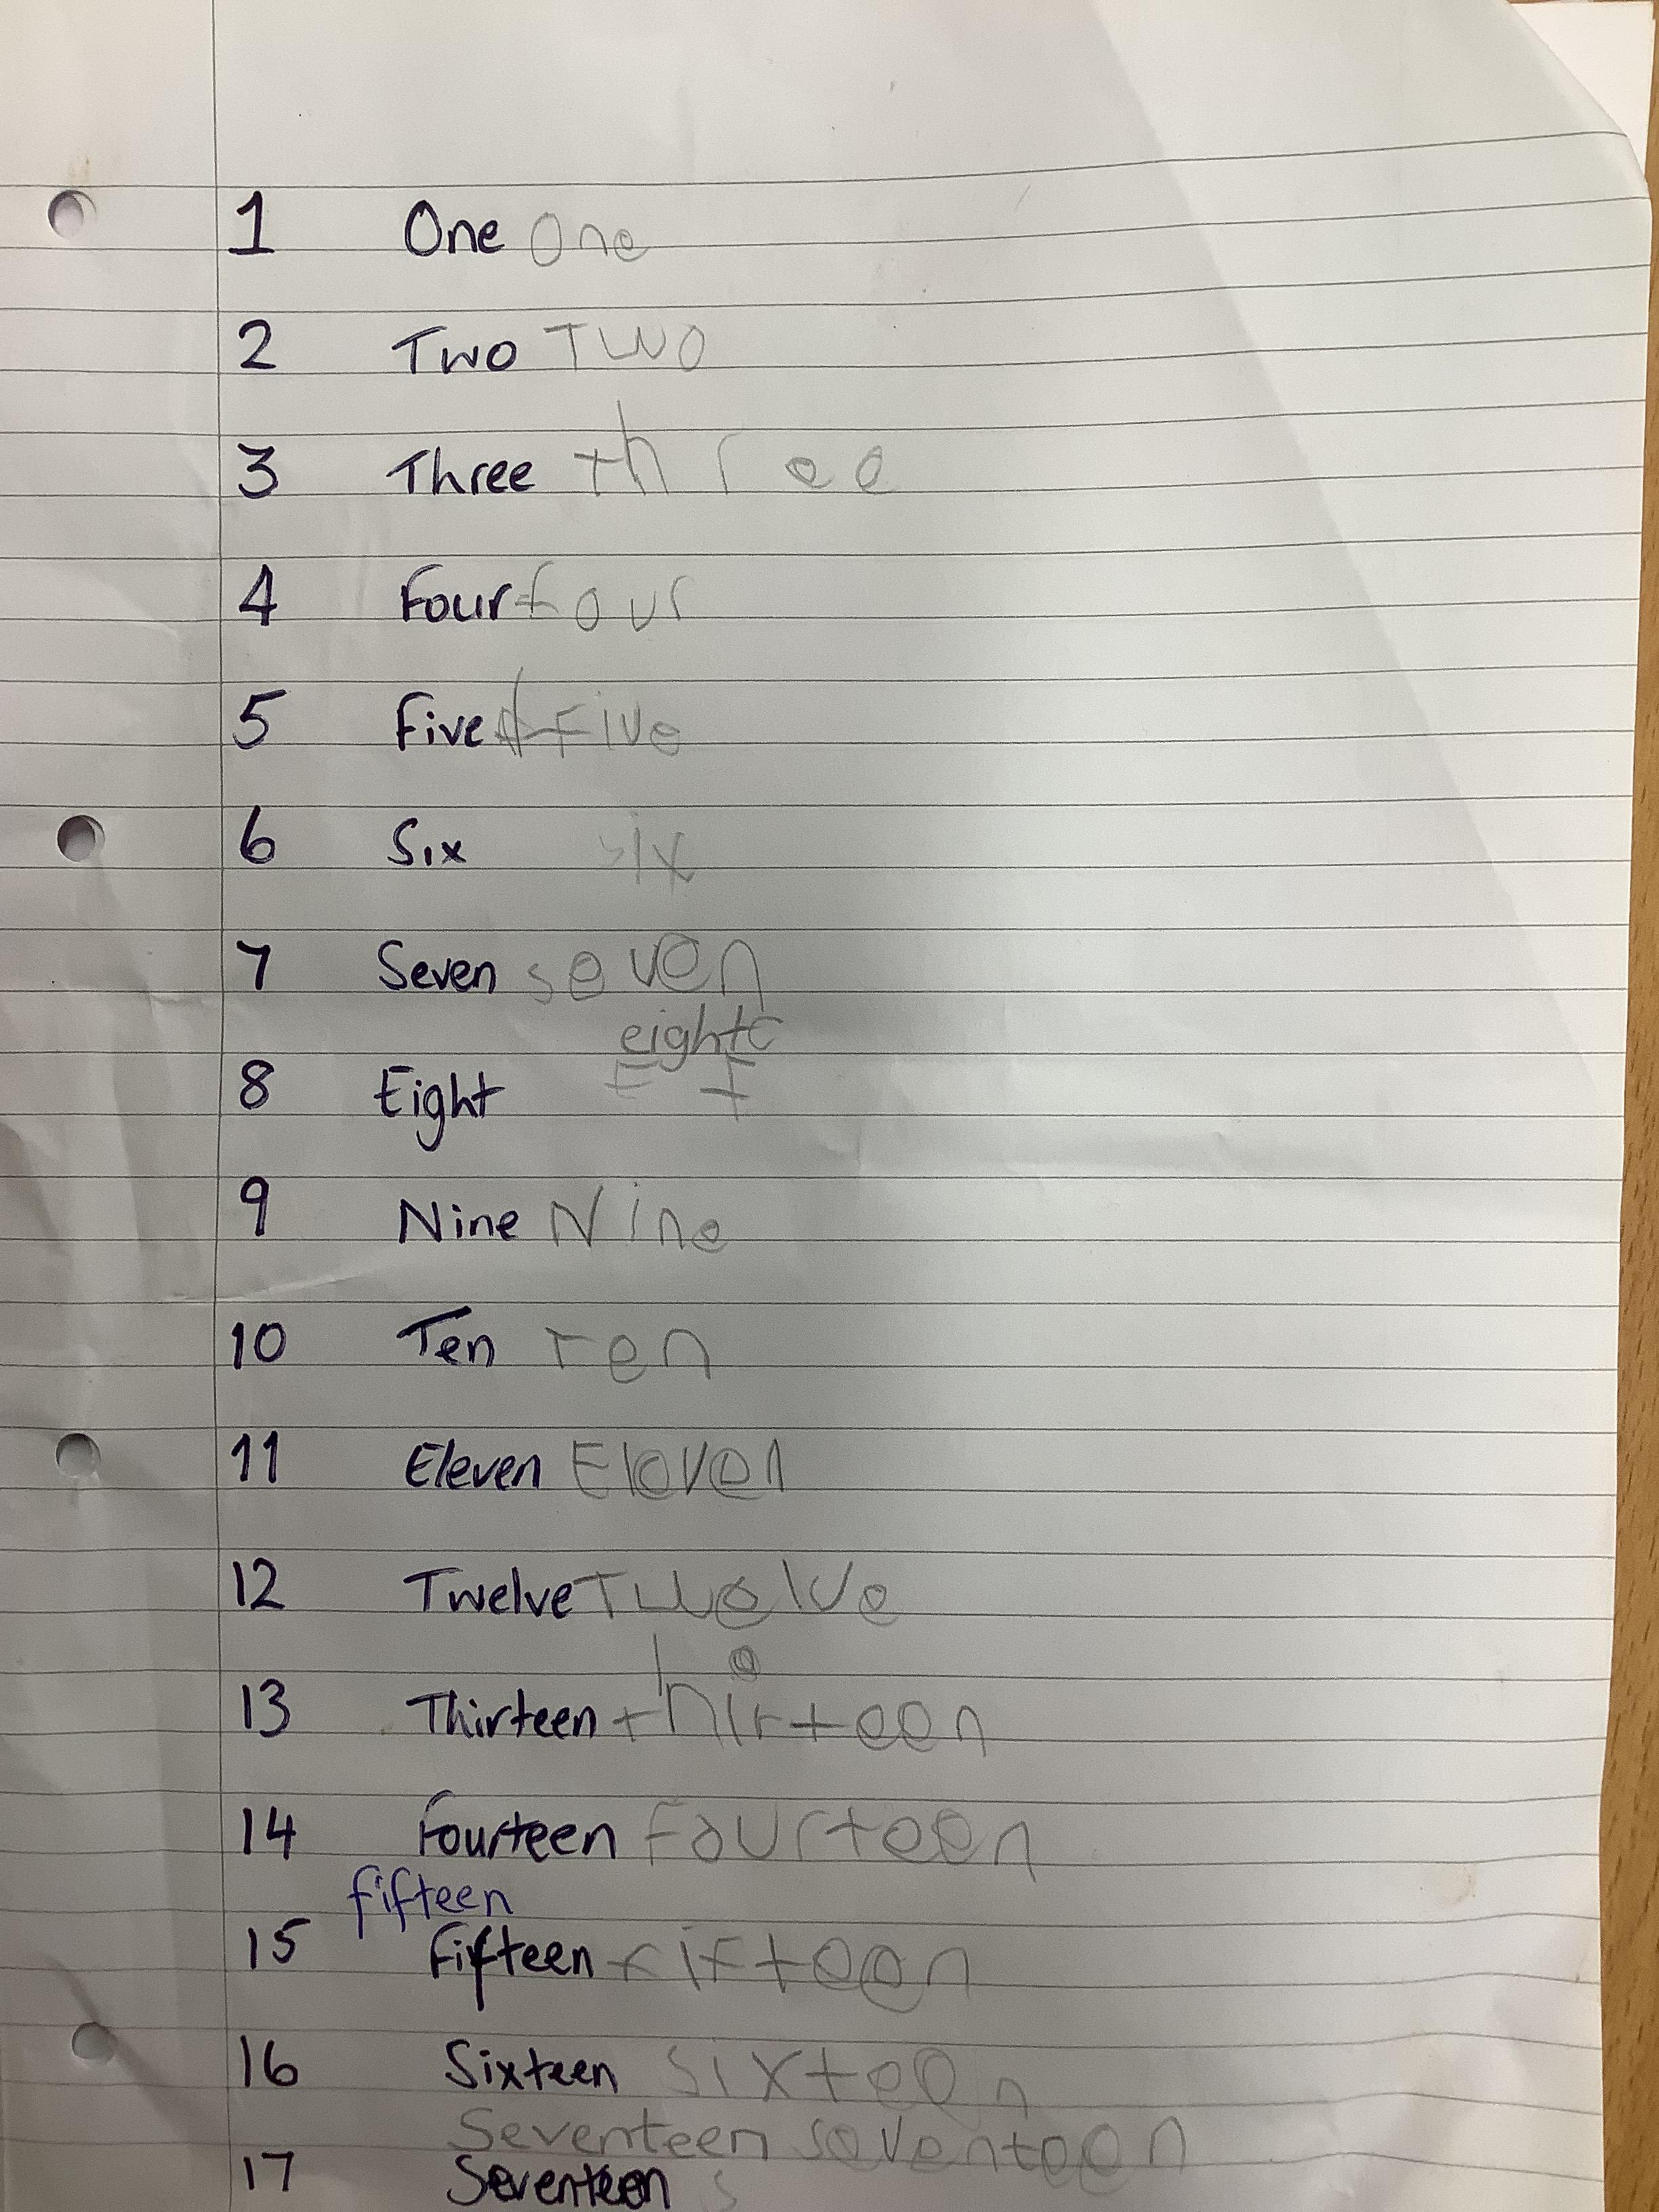 1 One One
2 Two Two
3 Three three
4 Four four
5 Five Five
6 Six six
7 Seven seven
eight
8 Eight E t
9 Nine Nine
10 Ten Ten
11 Eleven Eleven
12 Twelve Twelve
13 Thirteen thirteen
14 Fourteen Fourteen
fifteen
15 Fifteen fifteen
16 Sixteen sixteen
Seventeen seventeen
17 Seventeen s